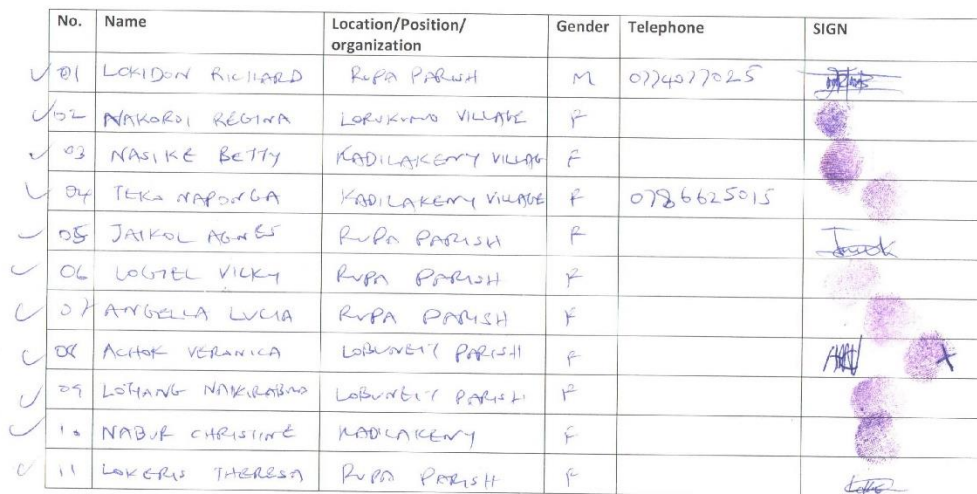 No. Name Location/Position/ organization Gender Telephone SIGN
01 LOKIDON RICHARD RUPA PARISH M 0774077025
02 NAKOROI REGINA LORUKUMO VILLAGE F
03 NASIKE BETTY KADILAKENY VILLAG F
04 TEKO NAPONGA KADILAKENY VILLAGE F 0786625015
05 JAIKOL AGNES RUPA PARISH F
06 LOGIEL VICKY RUPA PARISH F
07 ANGELLA LUCIA RUPA PARISH F
08 ACHOK VERONICA LOBUNEIT PARISH F
09 LOTHANG LOBUNEIT PARISH F
10 NABUR CHRISTINE KADILAKENY F
11 LOKERIS THERESA RUPA PARISH F